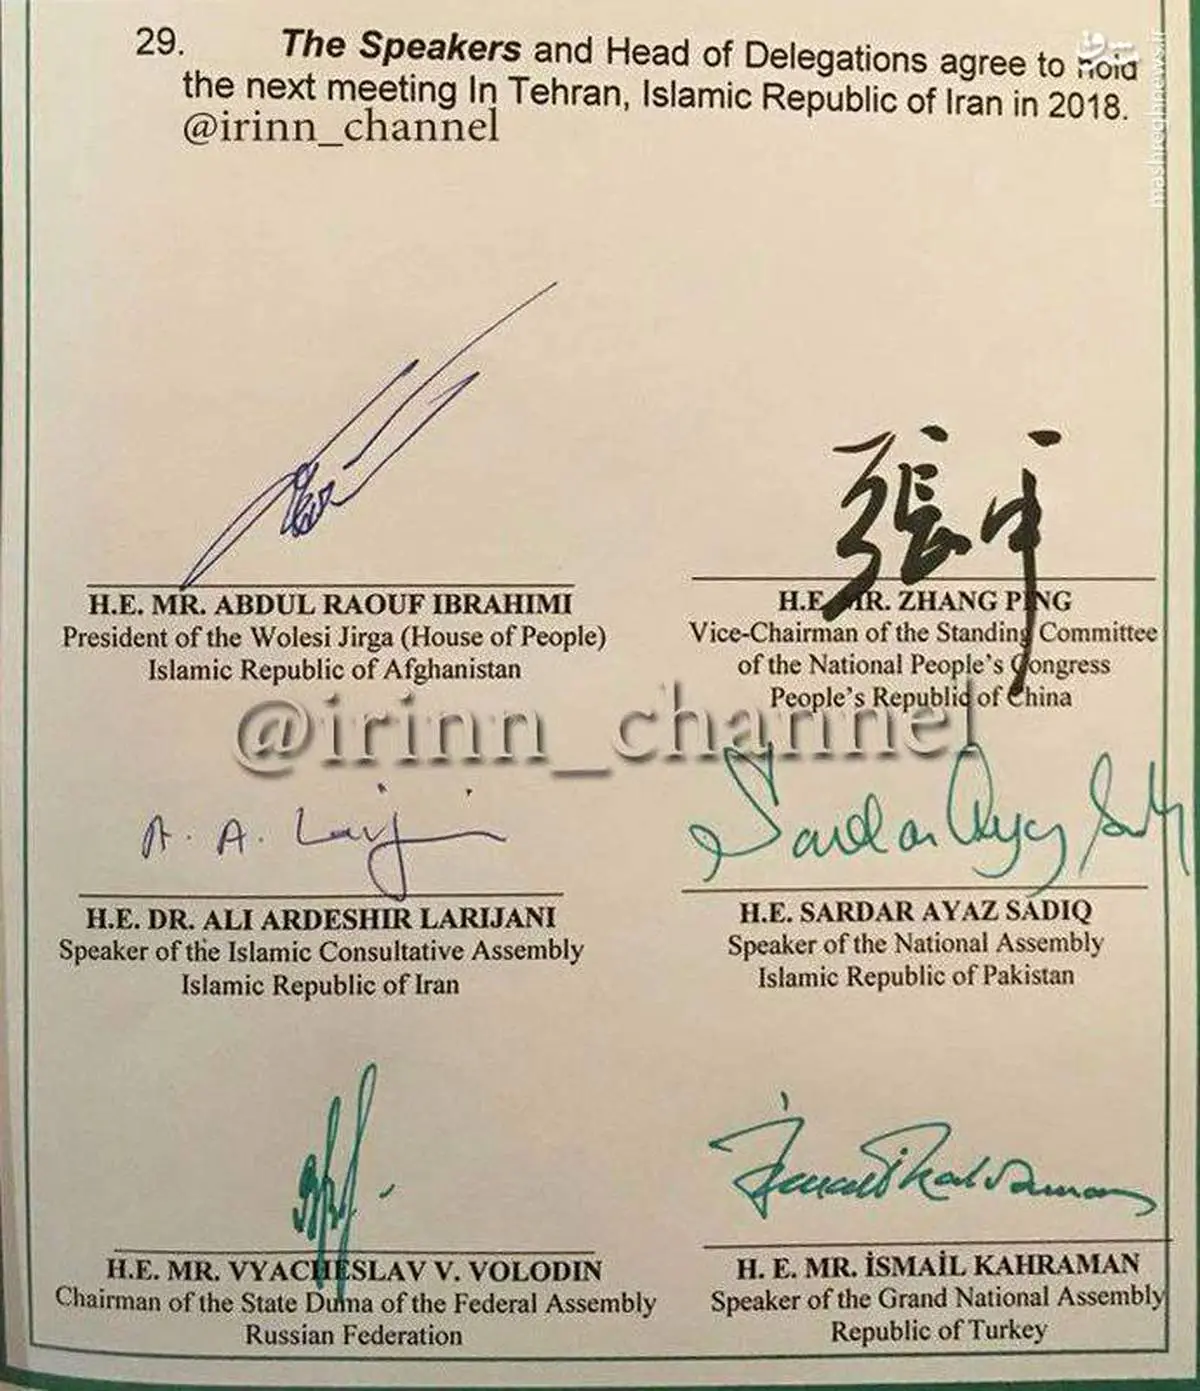 29. The Speakers and Head of Delegations agree to hold
the next meeting In Tehran, Islamic Republic of Iran in 2018.
@irinn_channel
مشرق
mashreghnews.ir
張平
H.E. MR. ABDUL RAOUF IBRAHIMI
President of the Wolesi Jirga (House of People)
Islamic Republic of Afghanistan
H.E. MR. ZHANG PING
Vice-Chairman of the Standing Committee
of the National People's Congress
People's Republic of China
@irinn_channel
A. A. Larijani
Sardar Ayaz Sadiq
H.E. DR. ALI ARDESHIR LARIJANI
Speaker of the Islamic Consultative Assembly
Islamic Republic of Iran
H.E. SARDAR AYAZ SADIQ
Speaker of the National Assembly
Islamic Republic of Pakistan
İsmail Kahraman
H.E. MR. VYACHESLAV V. VOLODIN
Chairman of the State Duma of the Federal Assembly
Russian Federation
H. E. MR. İSMAİL KAHRAMAN
Speaker of the Grand National Assembly
Republic of Turkey